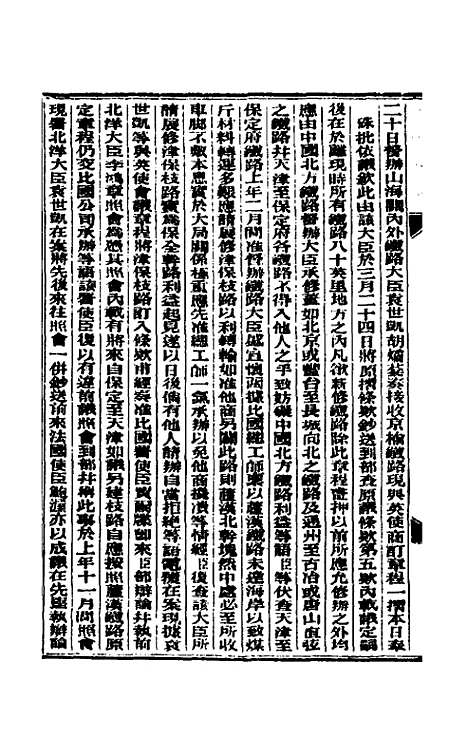 二十日督辦山海關內外鐵路大臣袁世凱胡燏棻奏接收京榆鐵路現與英使商訂章程一摺本日奉
硃批依議欽此由該大臣於三月二十四日將原摺條欵鈔送到部查原議條欵第五欵內載議定嗣
後在於離現時所有鐵路八十英里地方之內凡欲新修鐵路除此章程畫押以前所應允修辦之外均
應由中國北方鐵路督辦大臣承修薑如北京或豐台至長城向北之鐵路及通州至古冶或唐山直弦
之鐵路并天津至保定府各鐵路不得入他人之手致妨礙中國北方鐵路利益等語臣等伏查天津至
保定府鐵路上年二月間准督辦鐵路大臣盛宣懷函據比國總工師柬以蘆漢鐵路未達海岸以致煤
斤材料轉運多艱應請展修津保枝路以利轉輸如准他商另開此路則蘆漢北幹塊然中處必至所收
車脚不敷本息實於大局關係極重應先准總工師一氣承辦以免他商攙瀆等情經臣復查該大臣所
請展修津保枝路實爲保全幹路利益起見遂以日後倘有他人請辦自當拒絕等語電覆在案現據袁
世凱等與英使會議章程將津保枝路訂入條欵甫經奏准比國署使臣賈爾牒即來臣部辯論并執前
北洋大臣李鴻章照會爲憑其照會內載有將來自保定至天津如議另建枝路自應按照蘆漢鐵路原
定章程仍交比國公司承辦等語該署使臣復以有違前議照會到部并稱此事於上年十一月間照會
現署北洋大臣袁世凱在案將先後來往照會一併鈔送前來法國使臣鮑渥亦以成議在先堅執辯論